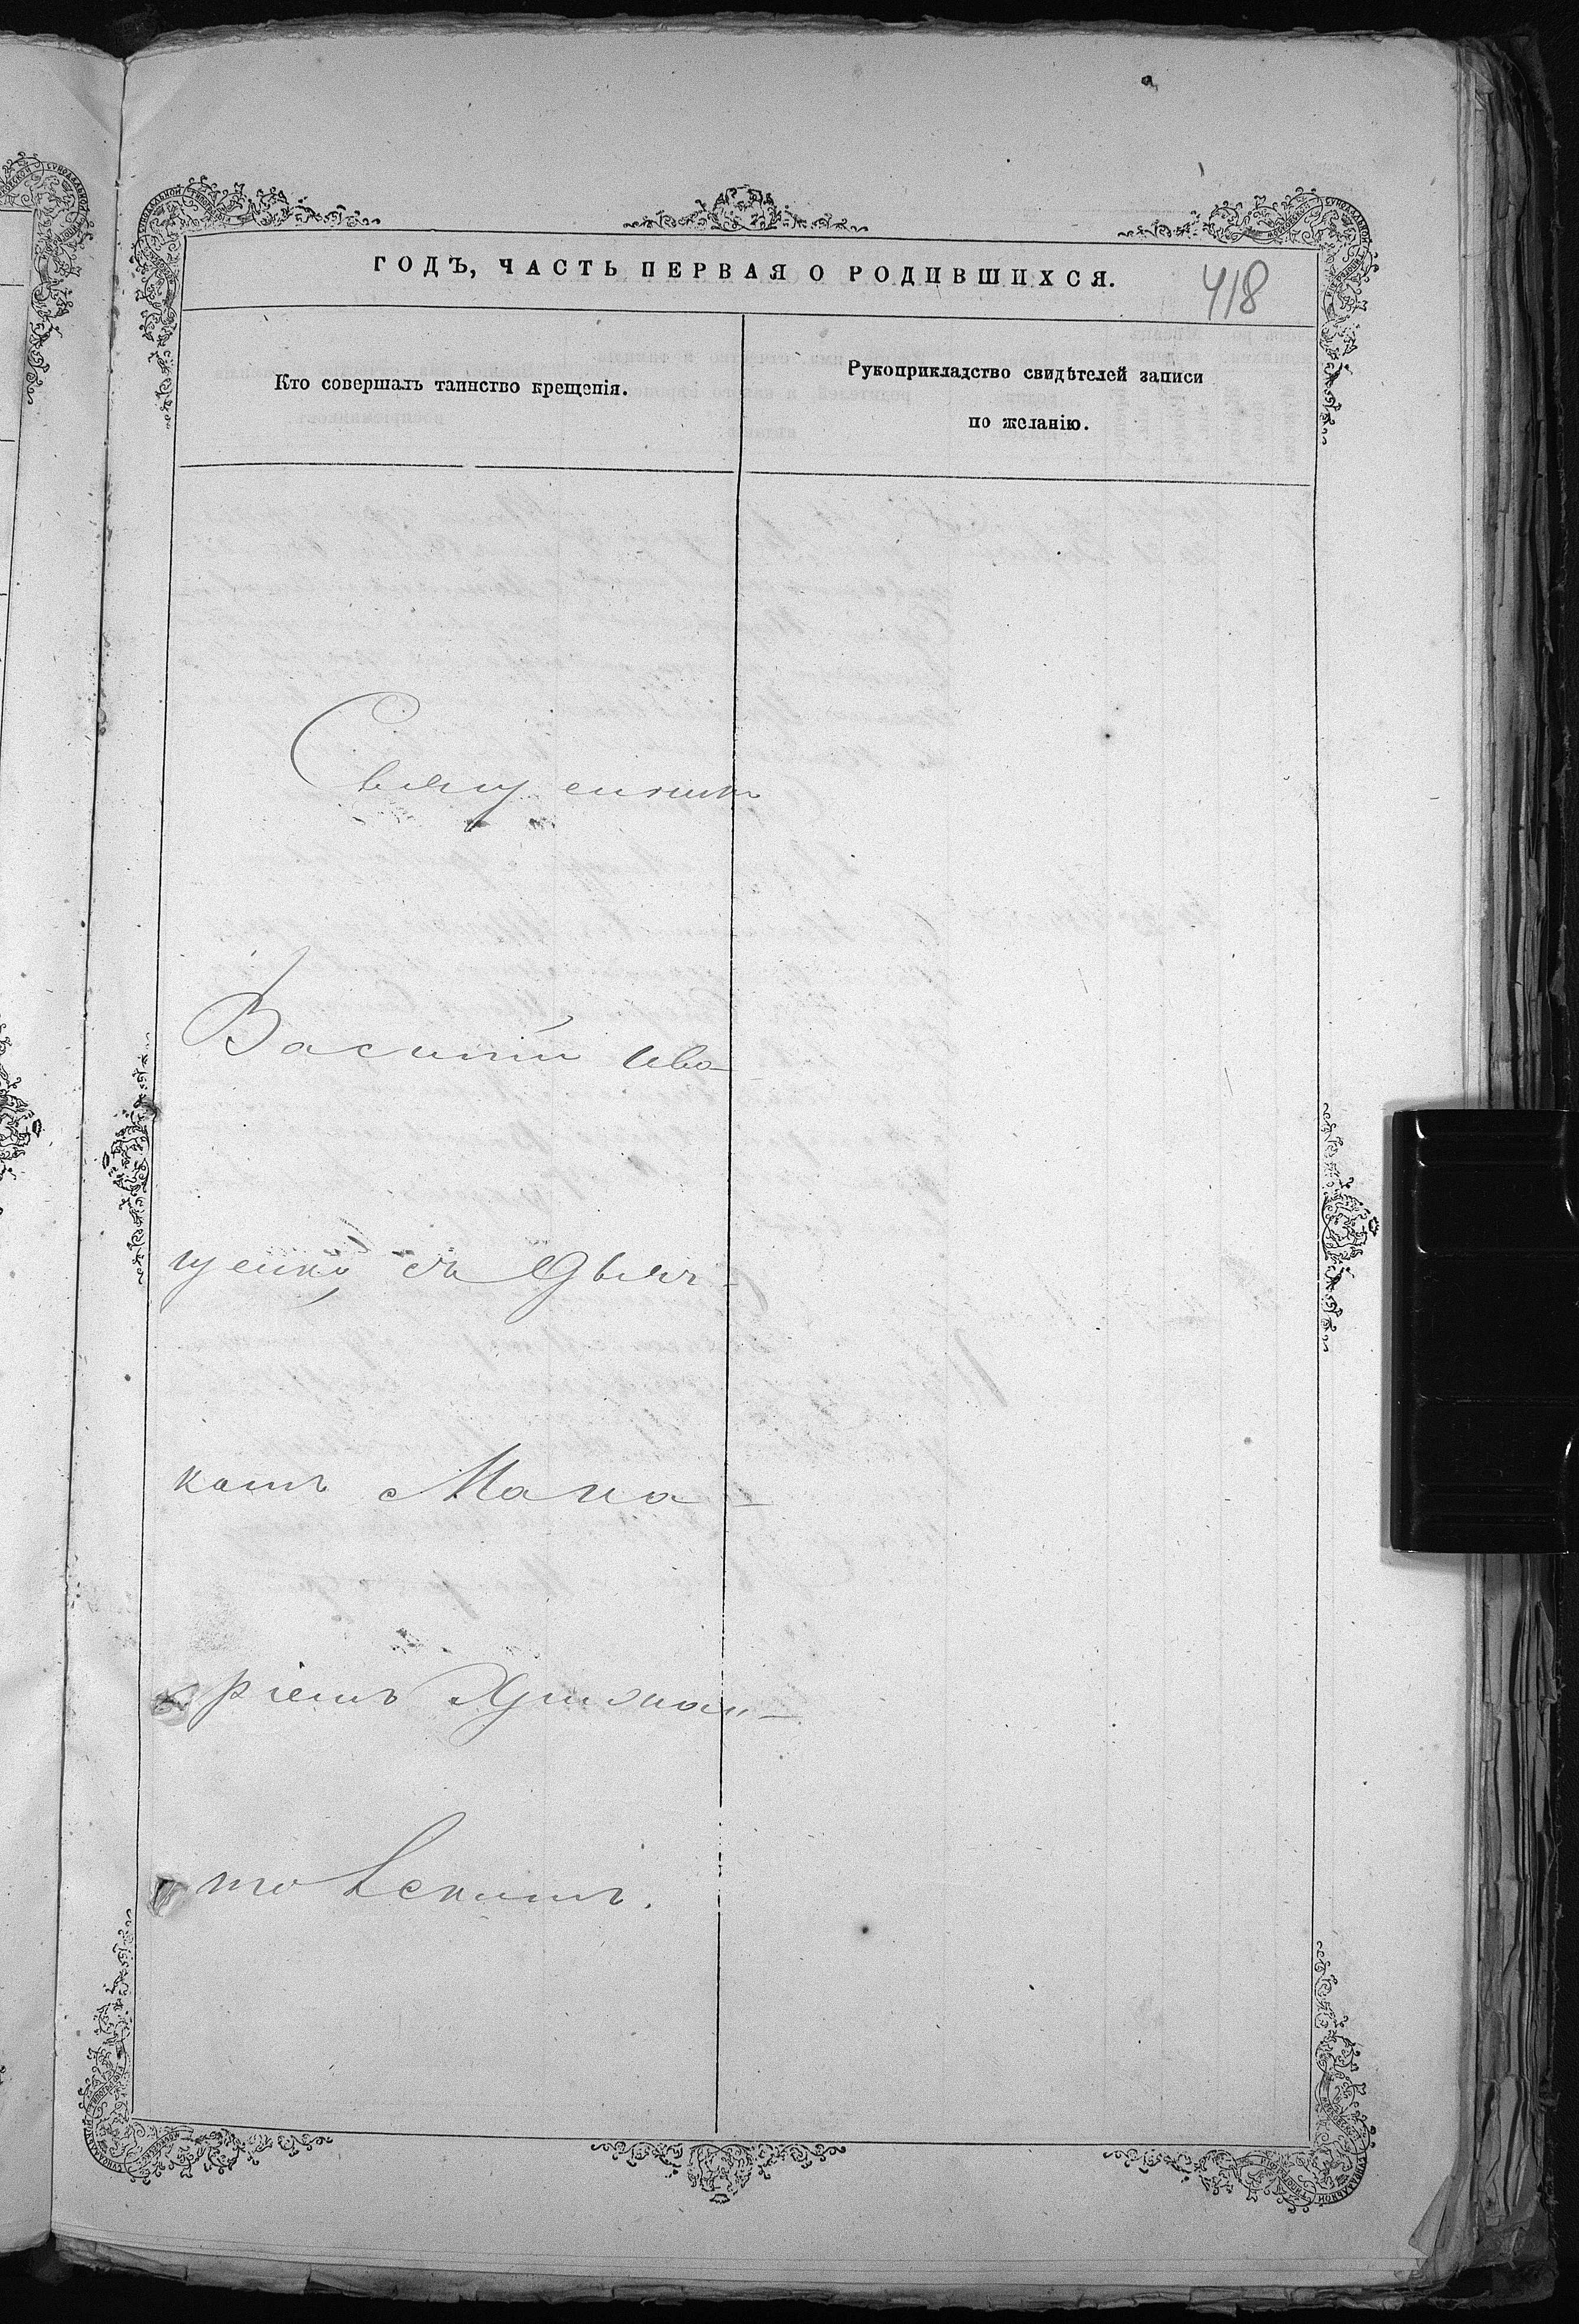 ГОДЪ, ЧАСТЬ ПЕРВАЯ О РОДИВШИХСЯ.
418
Кто совершалъ таинство крещенія.
Рукоприкладство свидѣтелей записи
по желанію.
Священникъ
Василій Ива-
щенко съ Дьяч-
комъ Мака-
ріемъ
товскимъ.